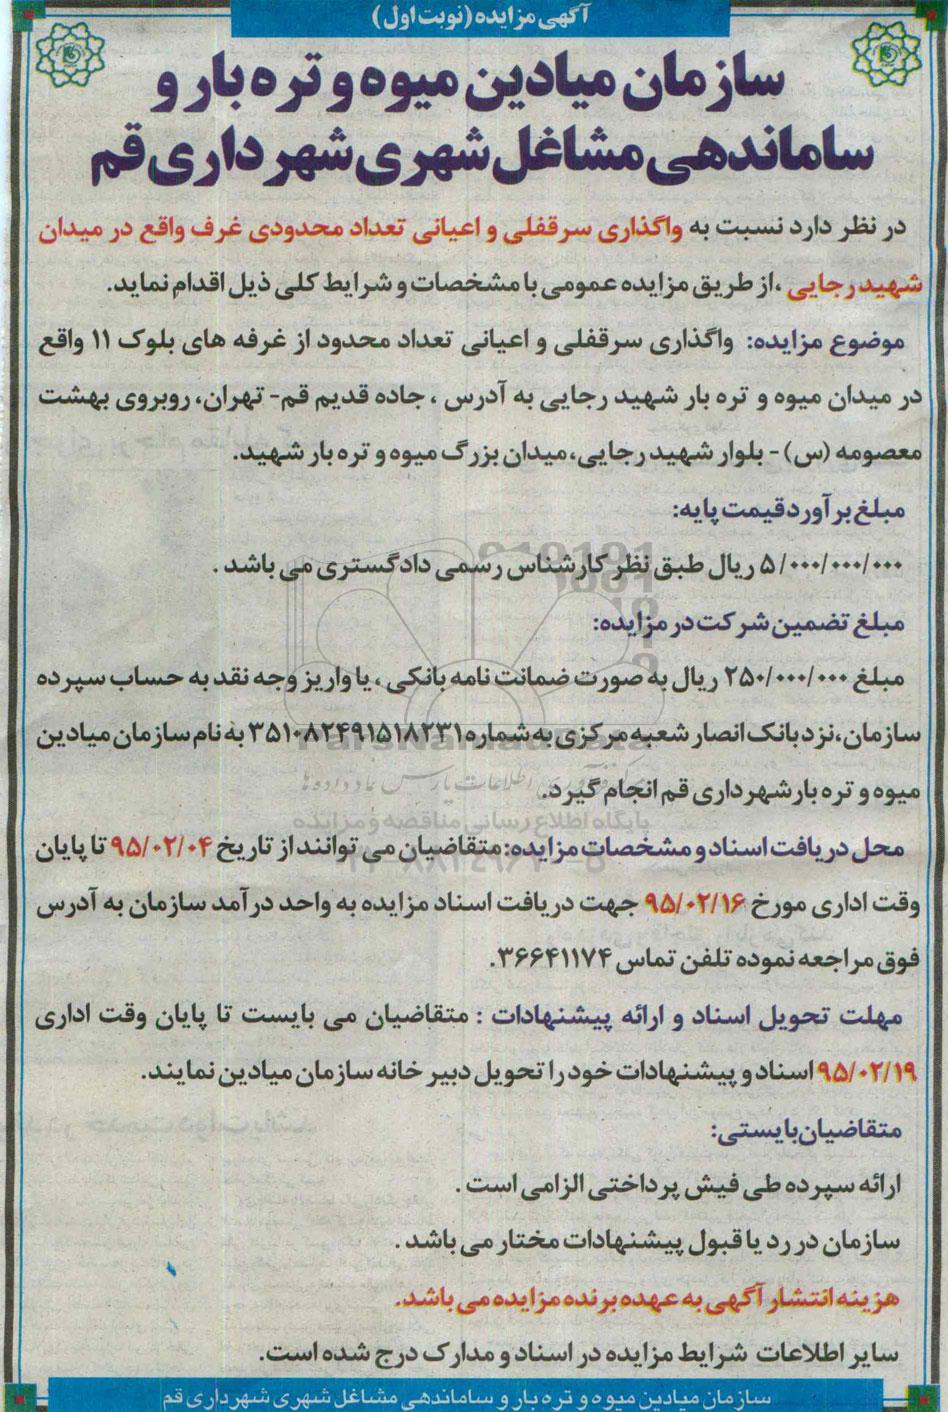 آگهی مزایده (نوبت اول)
سازمان میادین میوه و تره بار و
ساماندهی مشاغل شهری شهرداری قم
در نظر دارد نسبت به واگذاری سرقفلی و اعیانی تعداد محدودی غرف واقع در میدان
شهید رجایی ،از طریق مزایده عمومی با مشخصات و شرایط کلی ذیل اقدام نماید.
موضوع مزایده: واگذاری سرقفلی و اعیانی تعداد محدود از غرفه های بلوک ۱۱ واقع
در میدان میوه و تره بار شهید رجایی به آدرس ، جاده قدیم قم- تهران، روبروی بهشت
معصومه (س) - بلوار شهید رجایی، میدان بزرگ میوه و تره بار شهید.
مبلغ برآورد قیمت پایه:
۵/۰۰۰/۰۰۰/۰۰۰ ریال طبق نظر کارشناس رسمی دادگستری می باشد .
مبلغ تضمین شرکت در مزایده:
مبلغ ۲۵۰/۰۰۰/۰۰۰ ریال به صورت ضمانت نامه بانکی ، یا واریز وجه نقد به حساب سپرده
سازمان، نزد بانک انصار شعبه مرکزی به شماره ۳۵۱۰۸۲۴۹۱۵۱۸۲۳۱ به نام سازمان میادین
میوه و تره بار شهرداری قم انجام گیرد.
محل دریافت اسناد و مشخصات مزایده: متقاضیان می توانند از تاریخ ۹۵/۰۲/۰۴ تا پایان
وقت اداری مورخ ۹۵/۰۲/۱۶ جهت دریافت اسناد مزایده به واحد درآمد سازمان به آدرس
فوق مراجعه نموده تلفن تماس ۳۶۶۴۱۱۷۴.
مهلت تحویل اسناد و ارائه پیشنهادات : متقاضیان می بایست تا پایان وقت اداری
۹۵/۰۲/۱۹ اسناد و پیشنهادات خود را تحویل دبیر خانه سازمان میادین نمایند.
متقاضیان بایستی:
ارائه سپرده طی فیش پرداختی الزامی است .
سازمان در رد یا قبول پیشنهادات مختار می باشد .
هزینه انتشار آگهی به عهده برنده مزایده می باشد.
سایر اطلاعات شرایط مزایده در اسناد و مدارک درج شده است.
سازمان میادین میوه و تره بار و ساماندهی مشاغل شهری شهرداری قم
ParsNamadData
پایگاه اطلاع رسانی مناقصه و مزایده